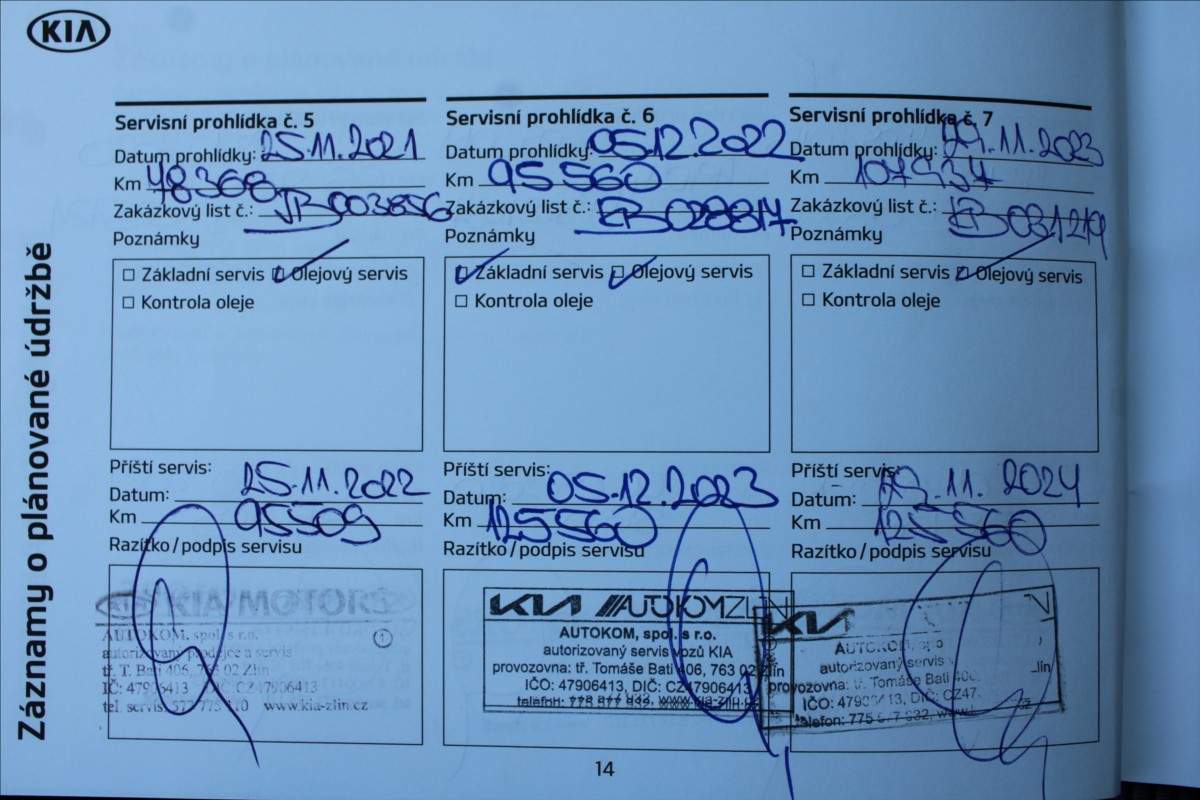 KIA
Záznamy o plánované údržbě
Servisní prohlídka č. 5
Datum prohlídky: 25.11.2021
Km 48368
Zakázkový list č.: JB003856
Poznámky
Základní servis Olejový servis
Kontrola oleje
Příští servis:
Datum: 25.11.2022
Km 95509
Razítko / podpis servisu
KIA MOTORS
AUTOKOM, spol. s r.o.
autorizovaný prodejce a servis
tř. T. Bati 406, 763 02 Zlín
IČ: 47906413 DIČ: CZ47906413
tel. servis: www.kia-zlin.cz
Servisní prohlídka č. 6
Datum prohlídky: 05.12.2022
Km 95560
Zakázkový list č.: EB028817
Poznámky
Základní servis Olejový servis
Kontrola oleje
Příští servis:
Datum: 05.12.2023
Km 125560
Razítko / podpis servisu
KIA AUTOKOMZLÍN
AUTOKOM, spol. s r.o.
autorizovaný servis vozů KIA
provozovna: tř. Tomáše Bati 406, 763 02 Zlín
IČO: 47906413, DIČ: CZ47906413
telefon: 775 577 832, www.kia-zlin.cz
Servisní prohlídka č. 7
Datum prohlídky: 11.2023
Km 107934
Zakázkový list č.: EB031219
Poznámky
Základní servis Olejový servis
Kontrola oleje
Příští servis:
Datum: 11. 2024
Km 125560
Razítko / podpis servisu
KIA
AUTOKOM, spo
autorizovaný servis v
provozovna: tř. Tomáše Bati 406 lín
IČO: 47906413, DIČ: CZ47
telefon: 775 577 832, www.
14